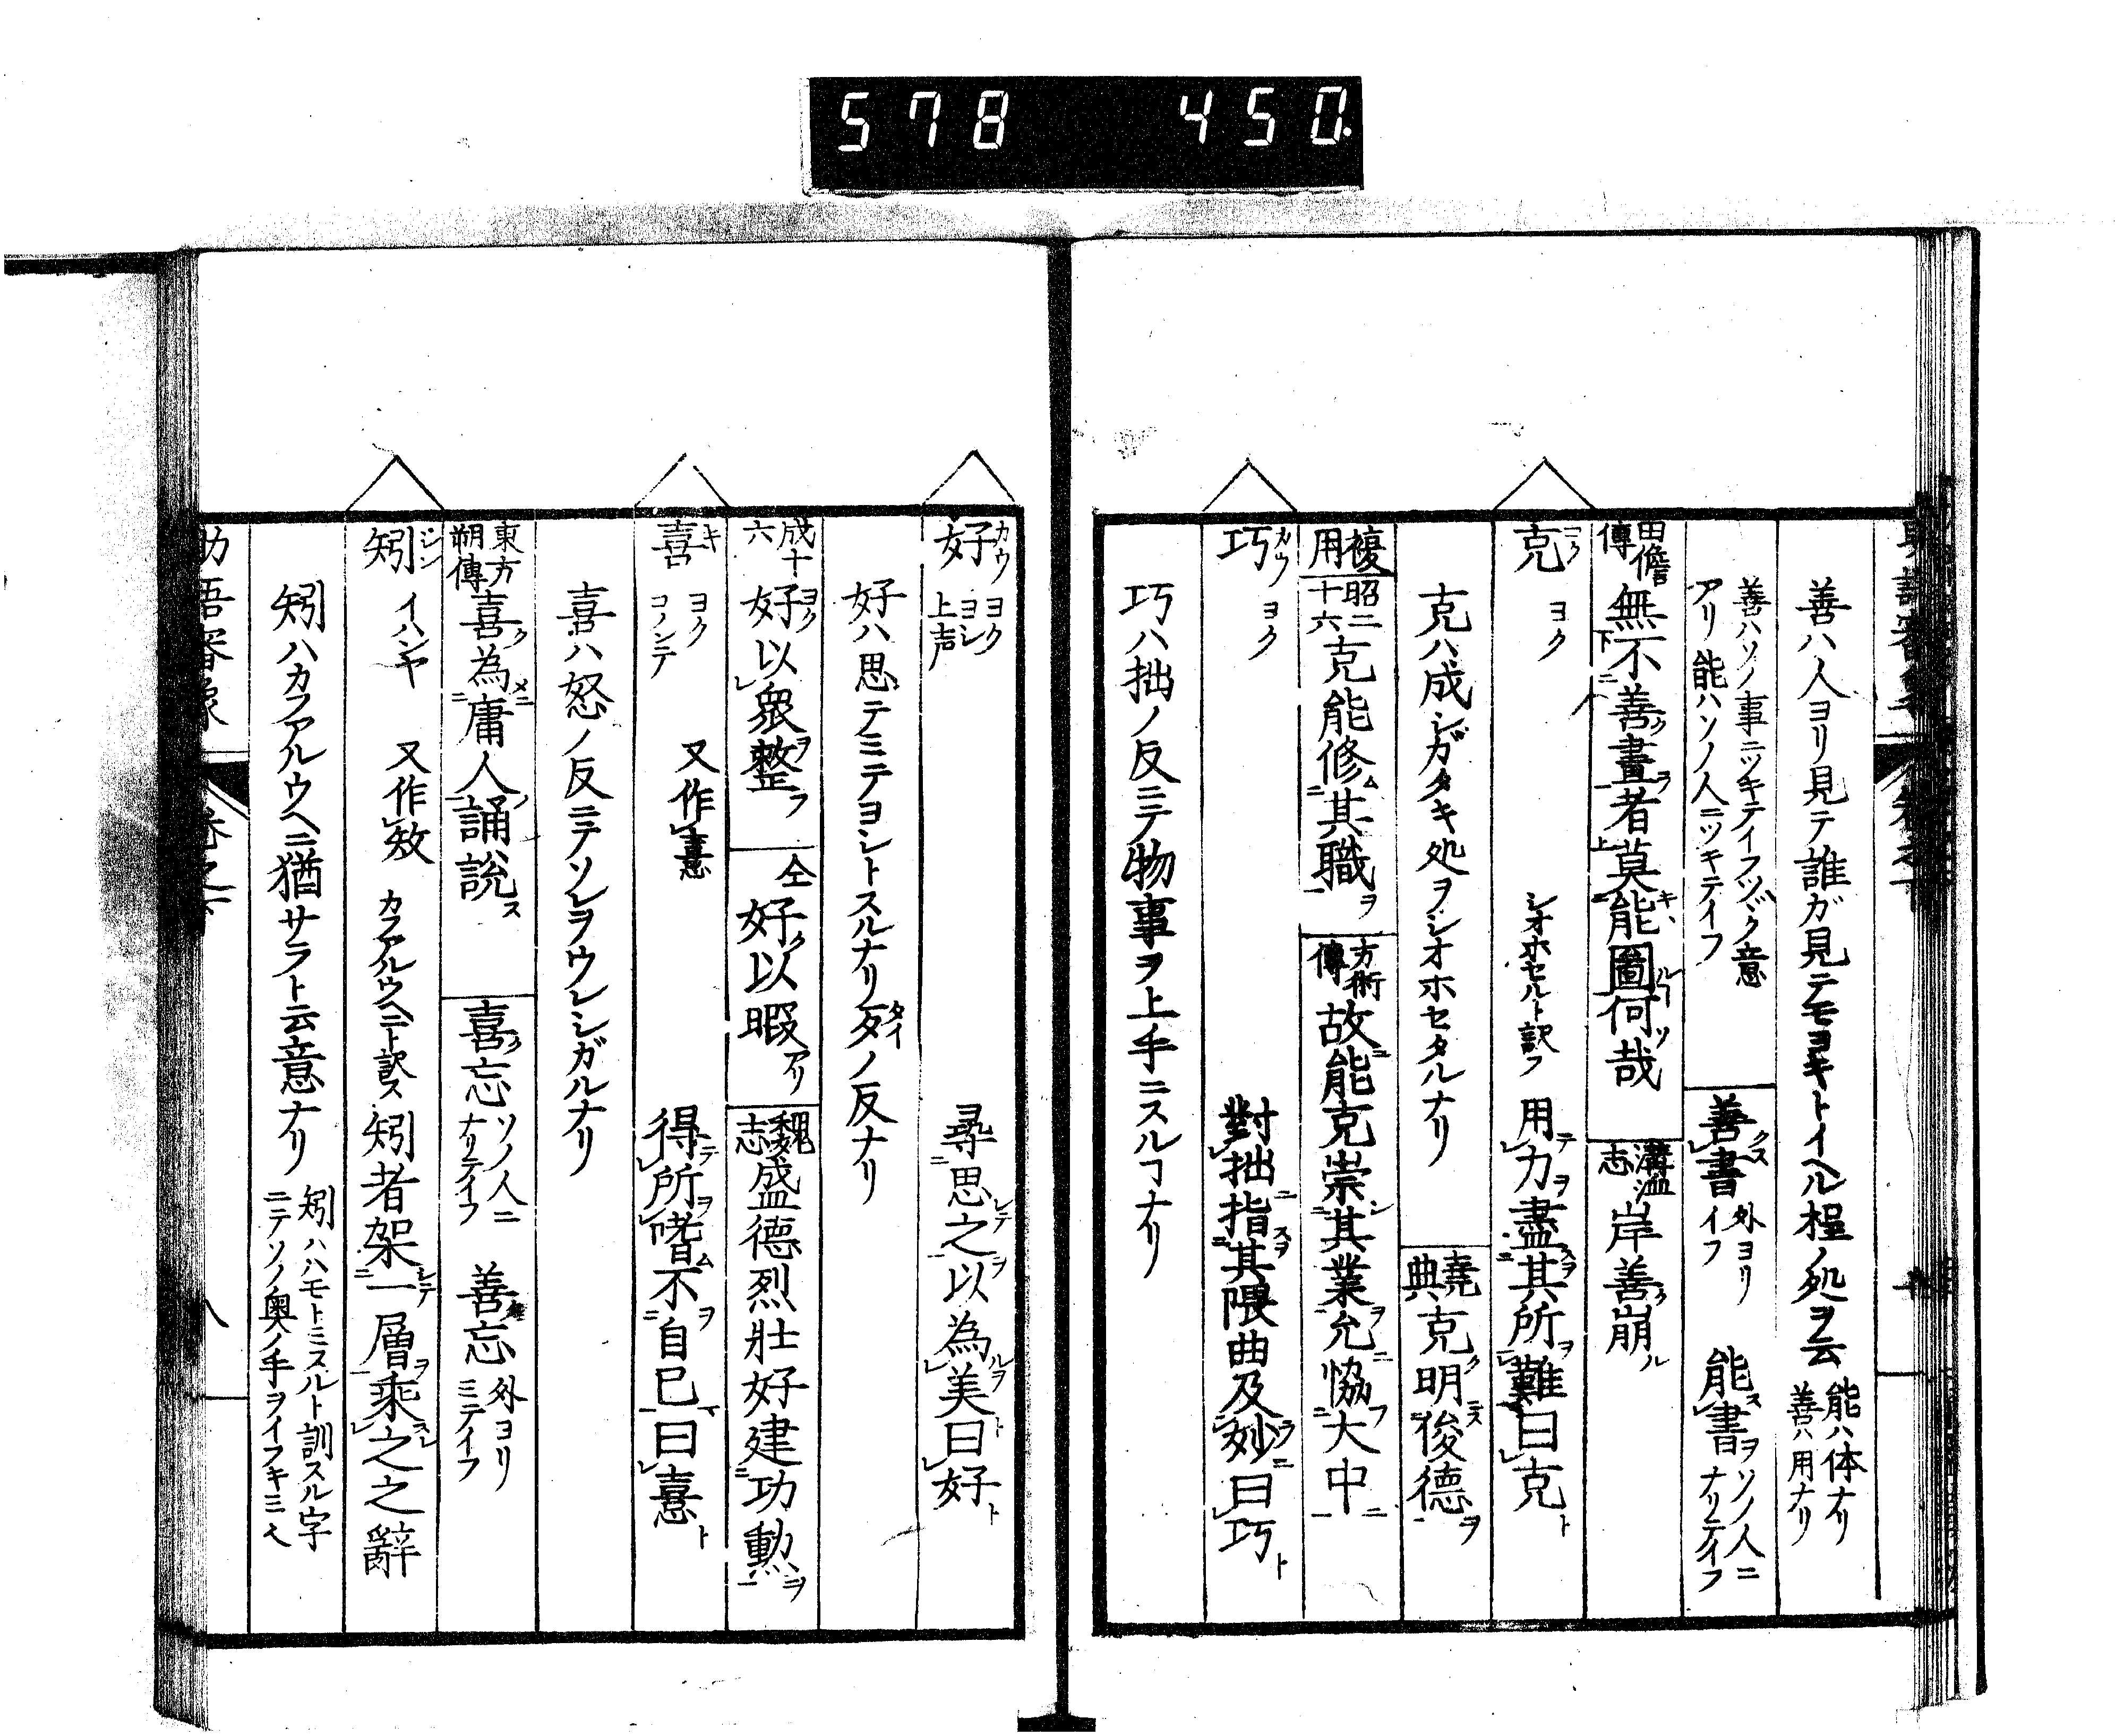 578 450
善ハ人ヨリ見テ誰ガ見テモヨキトイヘル程ノ処ヲ云 能ハ体ナリ 善ハ用ナリ
善ハソノ事ニツキテイフツヾク意アリ 能ハソノ人ニツキテイフ 善書 外ヨリイフ 能書 ソノ人ニナリテイフ
田儋傳 無不善畫者莫能圖何哉 溝洫志 岸善崩ル
克 コク ヨク シオホセルト訳ス 用力盡其所難曰克
克ハ成シガタキ処ヲシオホセタルナリ 堯典 克明俊德ヲ
複用 昭二十六 克能修其職ヲ 方術傳 故能克崇其業允恊大中
巧 カウ ヨク 對拙指其隈曲及妙曰巧
巧ハ拙ノ反ニテ物事ヲ上手ニスルヿナリ
好 カウ ヨク ヨシ 上声 尋思之以為美曰好
好ハ思テミテヨシトスルナリ歹ノ反ナリ
成十六 好以衆整 仝 好以暇 魏志 盛德烈壯好建功勲
喜 キ ヨク コノンテ 又作憙 得所嗜不自已曰憙
喜ハ怒ノ反ニテソレヲウレシガルナリ
東方朔傳 喜為庸人誦説 喜忘 ソノ人ニナリテイフ 善忘 外ヨリミテイフ
矧 シン イハンヤ 又作㰟 カフアルウヘニト訳ス 矧者架一層乘之之辭
矧ハカフアルウヘニ猶サラト云意ナリ 矧ハハモトミスルト訓スル字ニテソノ奧ノ手ヲイフキミ也
助語審象 巻之下 八